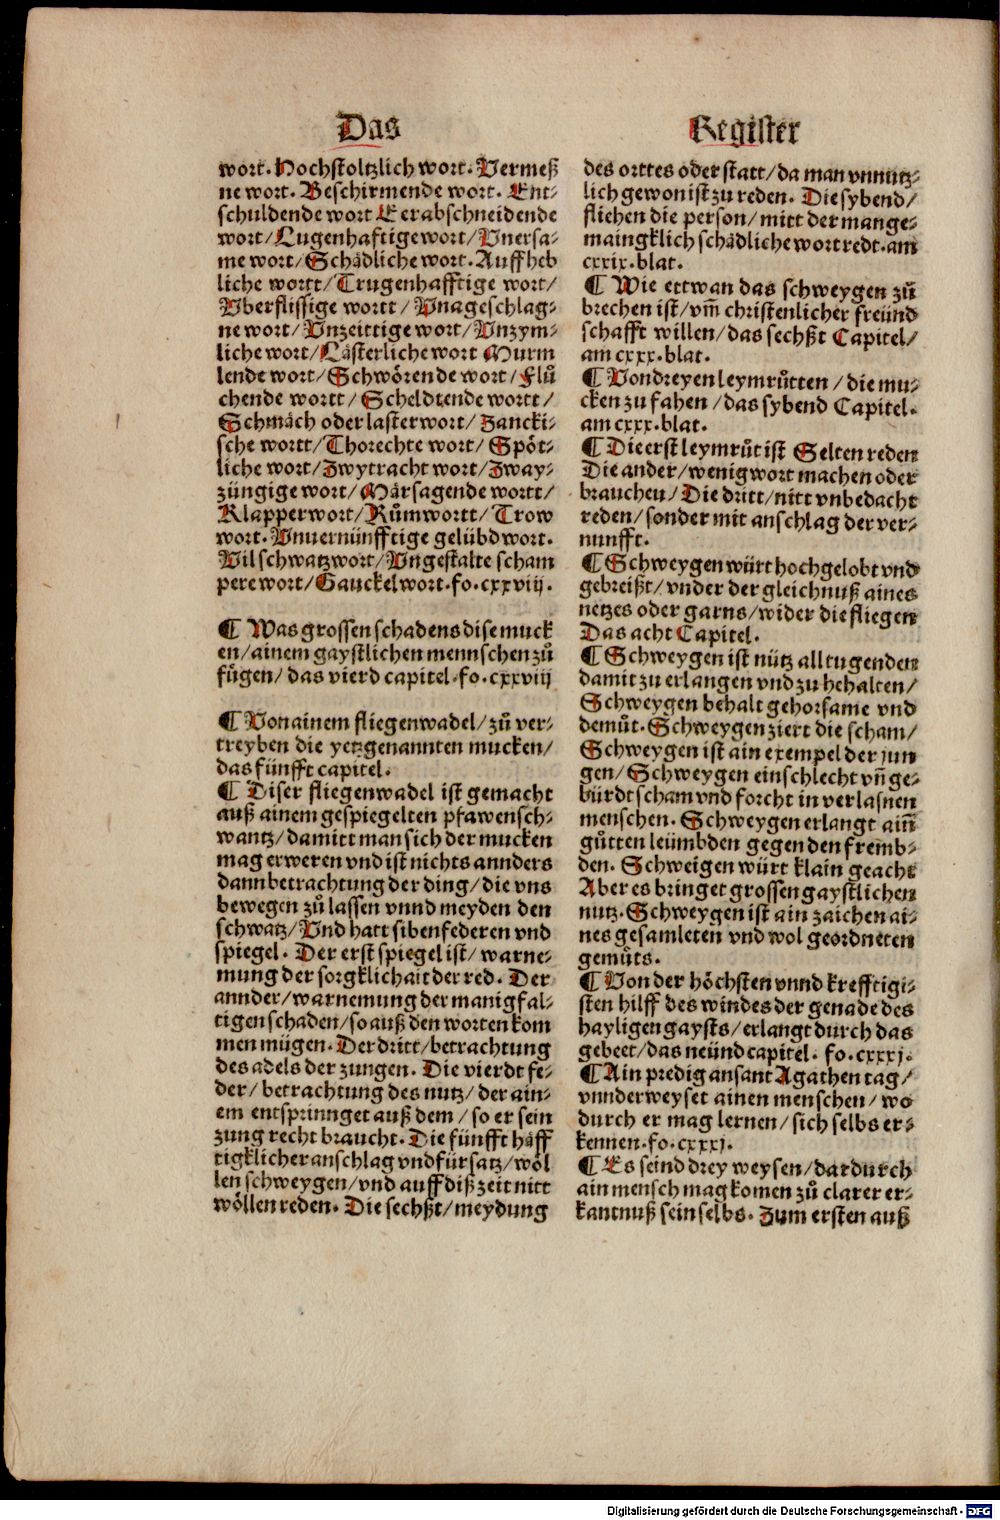 Das
wort. Hochstoltzlich wort. Vermeß
ne wort. Beschirmende wort. Ent⸗
schuldende wort Eerabschneidende
wort/ Lugenhaftige wort/ Vnersa⸗
me wort/ Schädliche wort. Auffheb
liche wortt/ Trugenhafftige wort/
Vberflissige wortt/ Vnageschlag⸗
ne wort/ Vnzeittige wort/ Vnzym⸗
liche wort/ Lästerliche wort Murm
lende wort/ Schwörende wort/ Flů
chende wortt/ Scheldtende wortt/
Schmäch oder lasterwort/ Zancki⸗
sche wortt/ Thorechte wort/ Spöt⸗
liche wort/ Zwytracht wort/ Zway⸗
züngige wort/ Märsagende wortt/
Klapperwort/ Růmwortt/ Trow
wort. Vnuernünfftige gelübd wort.
Vil schwatzwort/ Vngestalte scham
pere wort/ Gauckelwort. fo. cxxviij.
¶ Was grossen schadens dise muck
en/ ainem gaystlichen mennschen zů
fügen/ das vierd capitel. fo. cxxviij
¶ Von ainem fliegenwadel/ zů ver⸗
treyben die yetzgenannten mucken/
das fünfft capitel.
¶ Diser fliegenwadel ist gemacht
auß ainem gespiegelten pfawensch⸗
wantz/ damitt man sich der mucken
mag erweren vnd ist nichts annders
dann betrachtung der ding/ die vns
bewegen zů lassen vnnd meyden den
schwatz/ Vnd hatt siben federen vnd
spiegel. Der erst spiegel ist/ warne⸗
mung der sorgklichait der red. Der
annder/ warnemung der manigfal⸗
tigen schaden/ so auß den worten kom
men mügen. Der dritt/ betrachtung
des adels der zungen. Die vierdt fe⸗
der/ betrachtung des nutz/ der ain⸗
em entsprinnget auß dem/ so er sein
zung recht braucht. Die fünfft häff
tigklicher anschlag vnd fürsatz/ wöl
len schweygen/ vnd auff diß zeit nitt
wöllen reden. Die sechßt/ meydung
Register
des orttes oder statt/ da man vnnutz⸗
lich gewon ist zu reden. Die sybend/
fliehen die person/ mitt der mange⸗
maingklich schädliche wort redt. am
cxxix. blat.
¶ Wie ettwan das schweygen zů
brechen ist/ vm̄ christenlicher freünd
schafft willen/ das sechßt Capitel/
am cxxx. blat.
¶ Von dreyen leymrůtten/ die mu⸗
cken zu fahen/ das sybend Capitel.
am cxxx. blat.
¶ Die erst leymrůt ist Selten reden
Die ander/ wenig wort machen oder
brauchen/ Die dritt/ nitt vnbedacht
reden/ sonder mit anschlag der ver⸗
nunfft.
¶ Schweygen würt hoch gelobt vnd
gebreißt/ vnder der gleichnuß aines
netzes oder garns/ wider die fliegen
Das acht Capitel.
¶ Schweygen ist nütz all tugenden
damit zu erlangen vnd zu behalten/
Schweygen behalt gehorsame vnd
demůt. Schweygen ziert die scham/
Schweygen ist ain exempel der jun
gen/ Schweygen einschlecht vn̄ ge⸗
bürdt scham vnd forcht in verlasnen
menschen. Schweygen erlangt ain̄
gůtten leümbden gegen den fremb⸗
den. Schweigen würt klain geacht
Aber es bringet grossen gaystlichen
nutz. Schweygen ist ain zaichen ai⸗
nes gesamleten vnd wol geordneten
gemůts.
¶ Von der höchsten vnnd krefftigi⸗
sten hilff des windes der genade des
hayligen gaysts/ erlangt durch das
gebeet/ das neünd capitel. fo. cxxxj.
¶ Ain predig an sant Agathen tag/
vnnderweyset ainen menschen/ wo
durch er mag lernen/ sich selbs er⸗
kennen. fo. cxxxj.
¶ Es seind drey weysen/ dardurch
ain mensch mag komen zů clarer er⸗
kantnuß sein selbs. Zum ersten auß
Digitalisierung gefördert durch die Deutsche Forschungsgemeinschaft - DFG